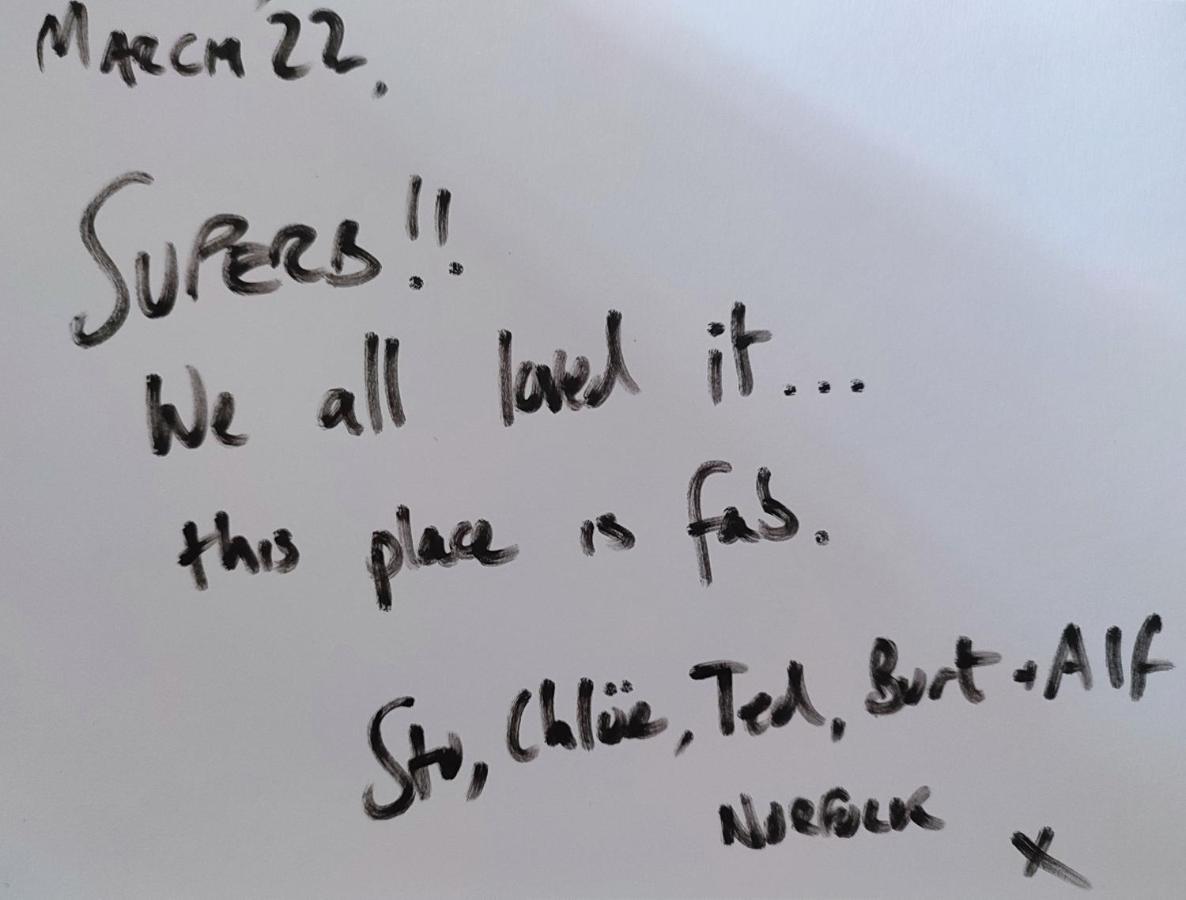 MARCH '22.
SUPERB!!
We all loved it...
this place is fab.
Stu, Chlöe, Ted, Burt + Alf
NORFOLK x